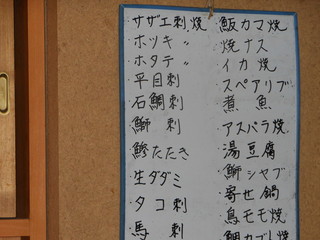 サザエ刺焼
ホッキ〃
ホタテ〃
平目刺
石鯛刺
鰤刺
鯵たたき
生ダダミ
タコ刺
馬刺
飯カマ焼
焼ナス
イカ焼
スペアリブ
煮魚
アスパラ焼
湯豆腐
鰤シャブ
寄せ鍋
鳥モモ焼
鯛カブト焼